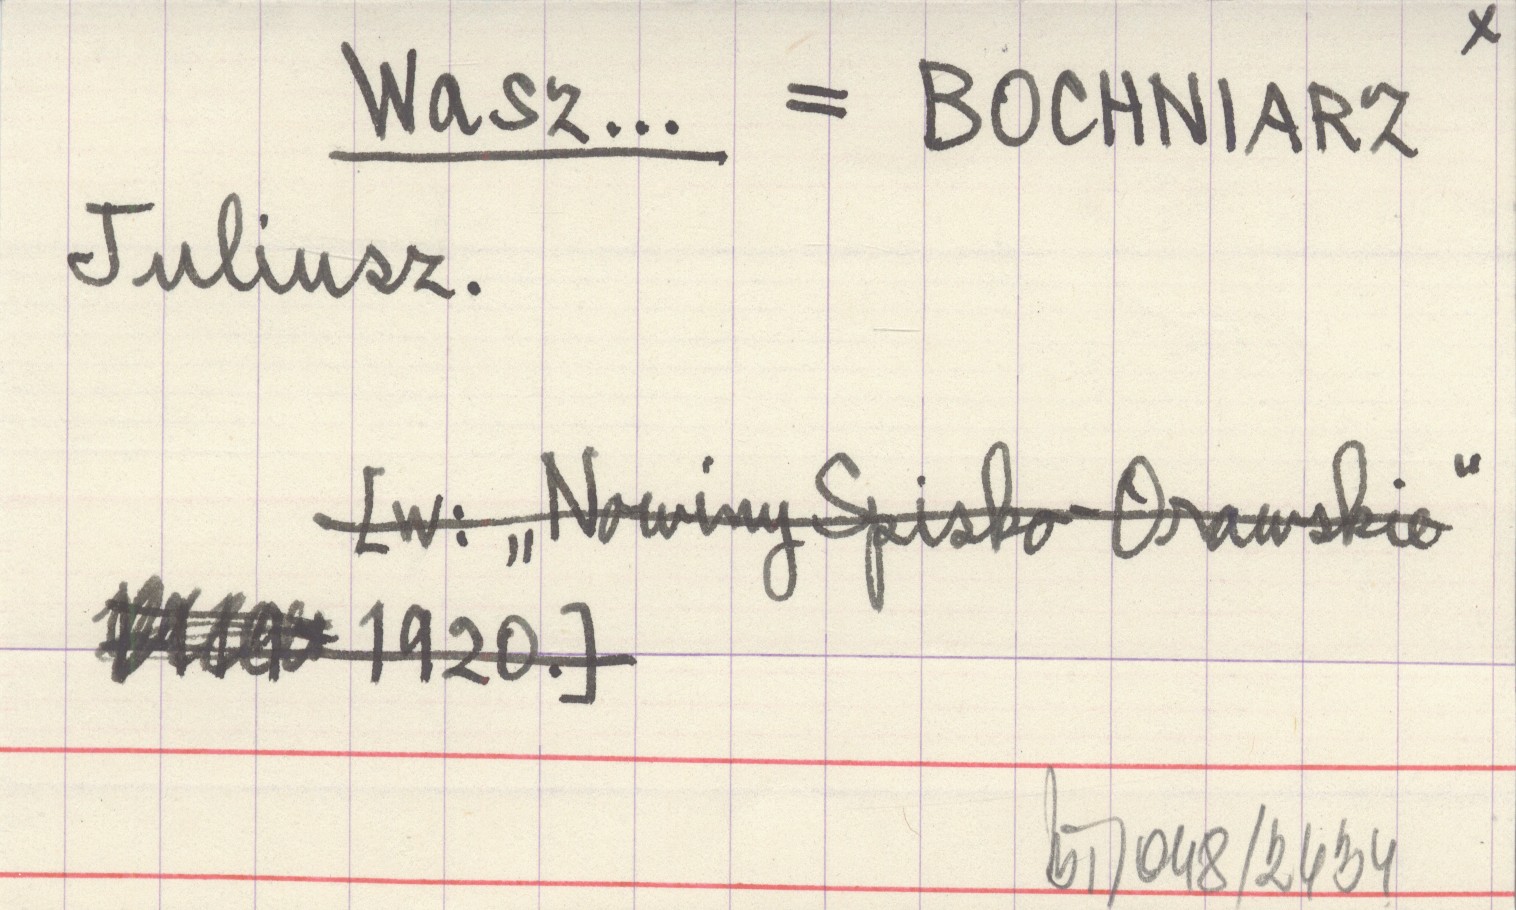 x
Wasz... = BOCHNIARZ
Juliusz.
[w: „Nowiny Spisko-Orawskie"
1920.]
048/2434